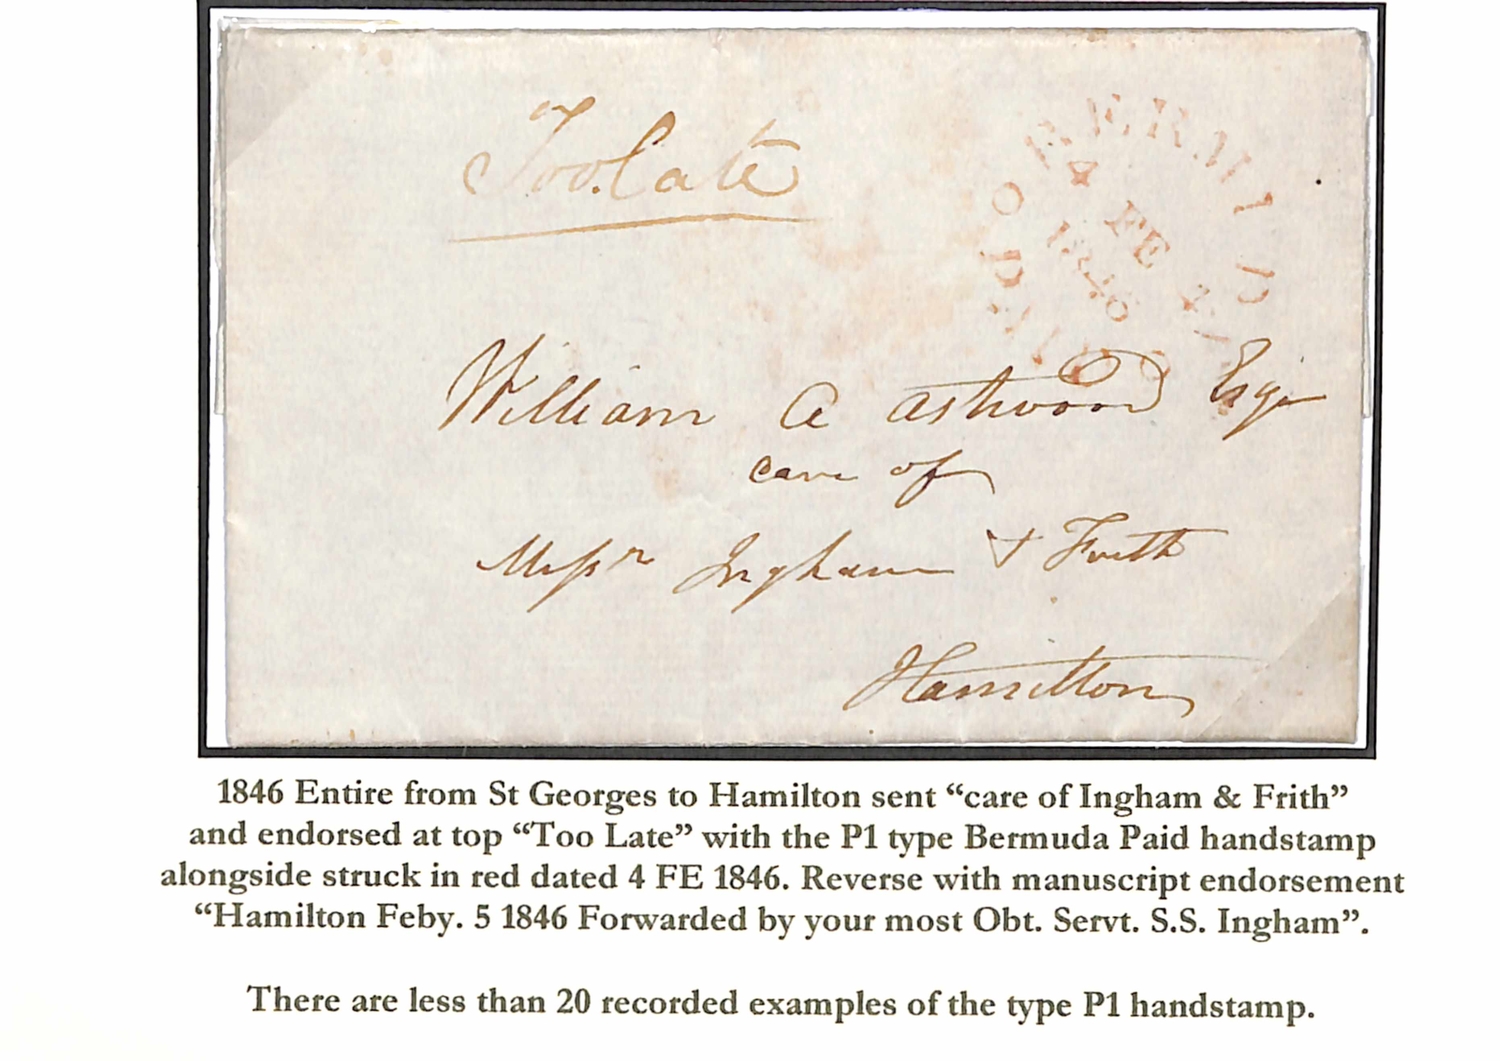 Too Late
BERMUDA
4 FE
1846
PAID
William A astwood Esqr
care of
Messrs Ingham & Frith
Hamilton
1846 Entire from St Georges to Hamilton sent “care of Ingham & Frith”
and endorsed at top “Too Late” with the P1 type Bermuda Paid handstamp
alongside struck in red dated 4 FE 1846. Reverse with manuscript endorsement
“Hamilton Feby. 5 1846 Forwarded by your most Obt. Servt. S.S. Ingham”.
There are less than 20 recorded examples of the type P1 handstamp.